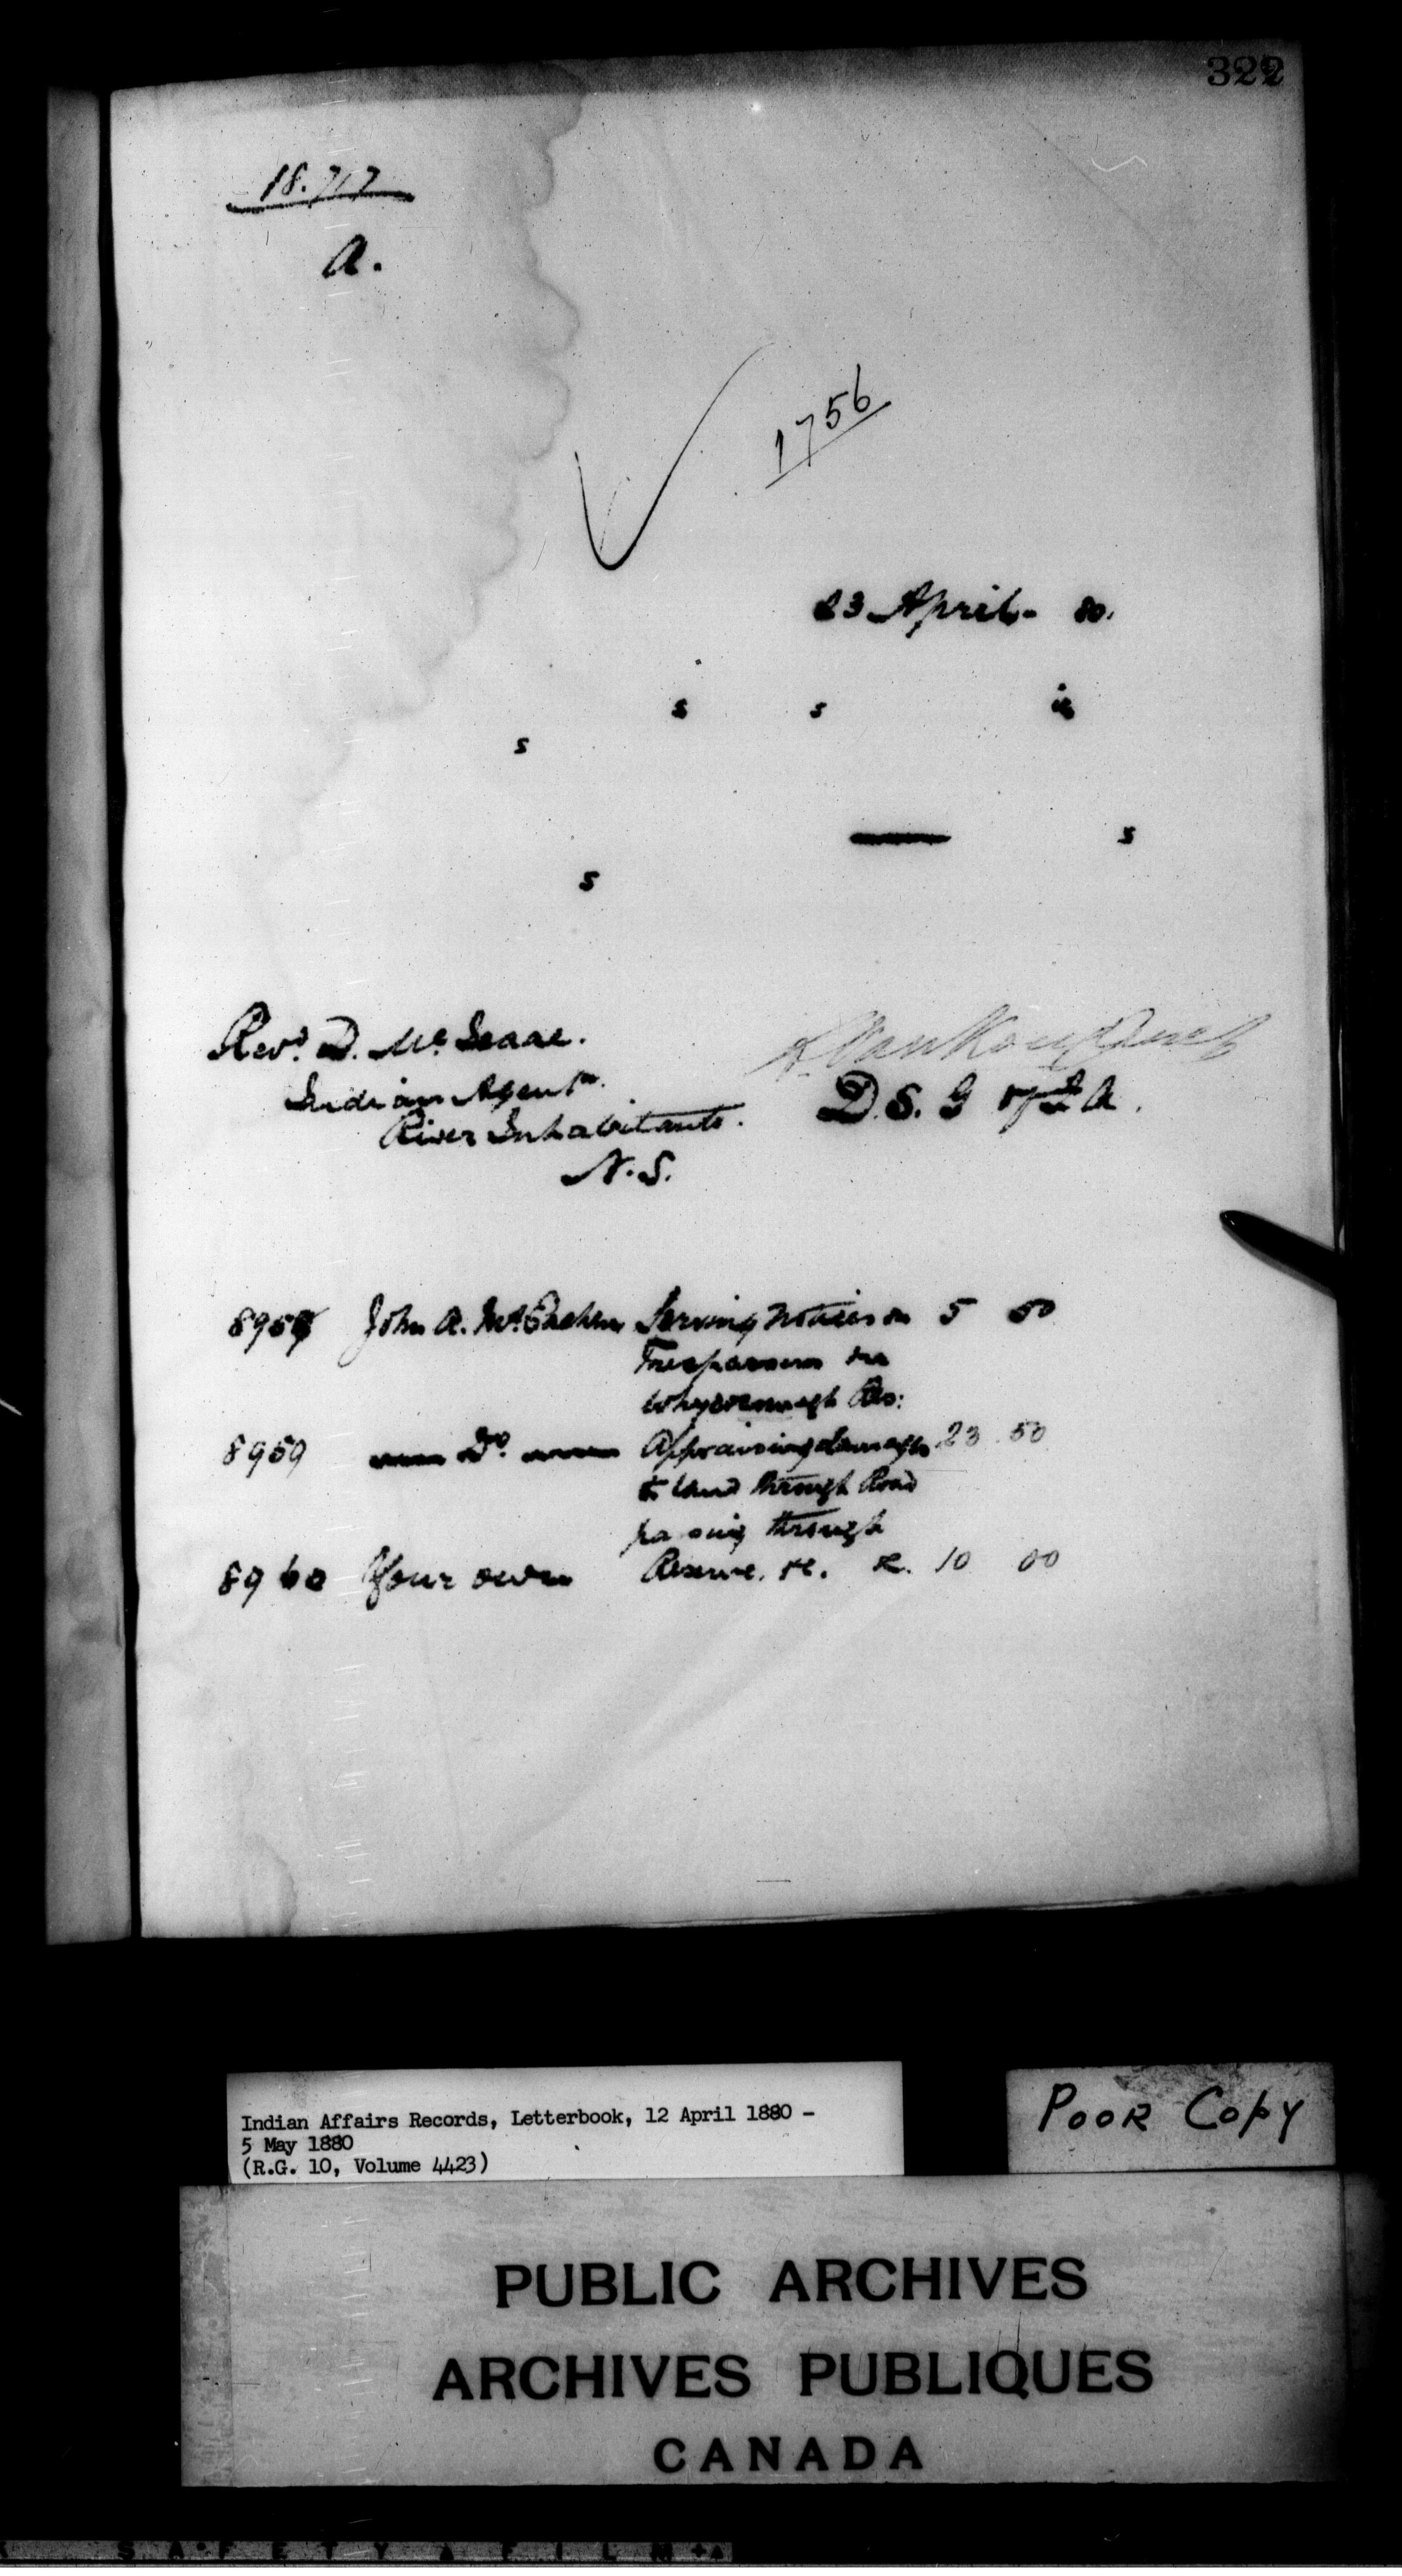 322
18.717
A.
1756
23 April - 80.
s s is
s
s
s
Revd. D. McIsaac.
Indian Agent.
River Inhabitants.
N.S.
L. VanKoughnet
D.S.G of I A.
8958 John A. McEachen Serving Notices on 5 50
Trespassers on
Whycocomagh Res:
8959 Do. Appraising damages 23 50
to land through Road
passing through
8960 Your own Reserve. &c. &. 10 00
Indian Affairs Records, Letterbook, 12 April 1880 -
5 May 1880
(R.G. 10, Volume 4423)
POOR COPY
PUBLIC ARCHIVES
ARCHIVES PUBLIQUES
CANADA
SAFETY FILM